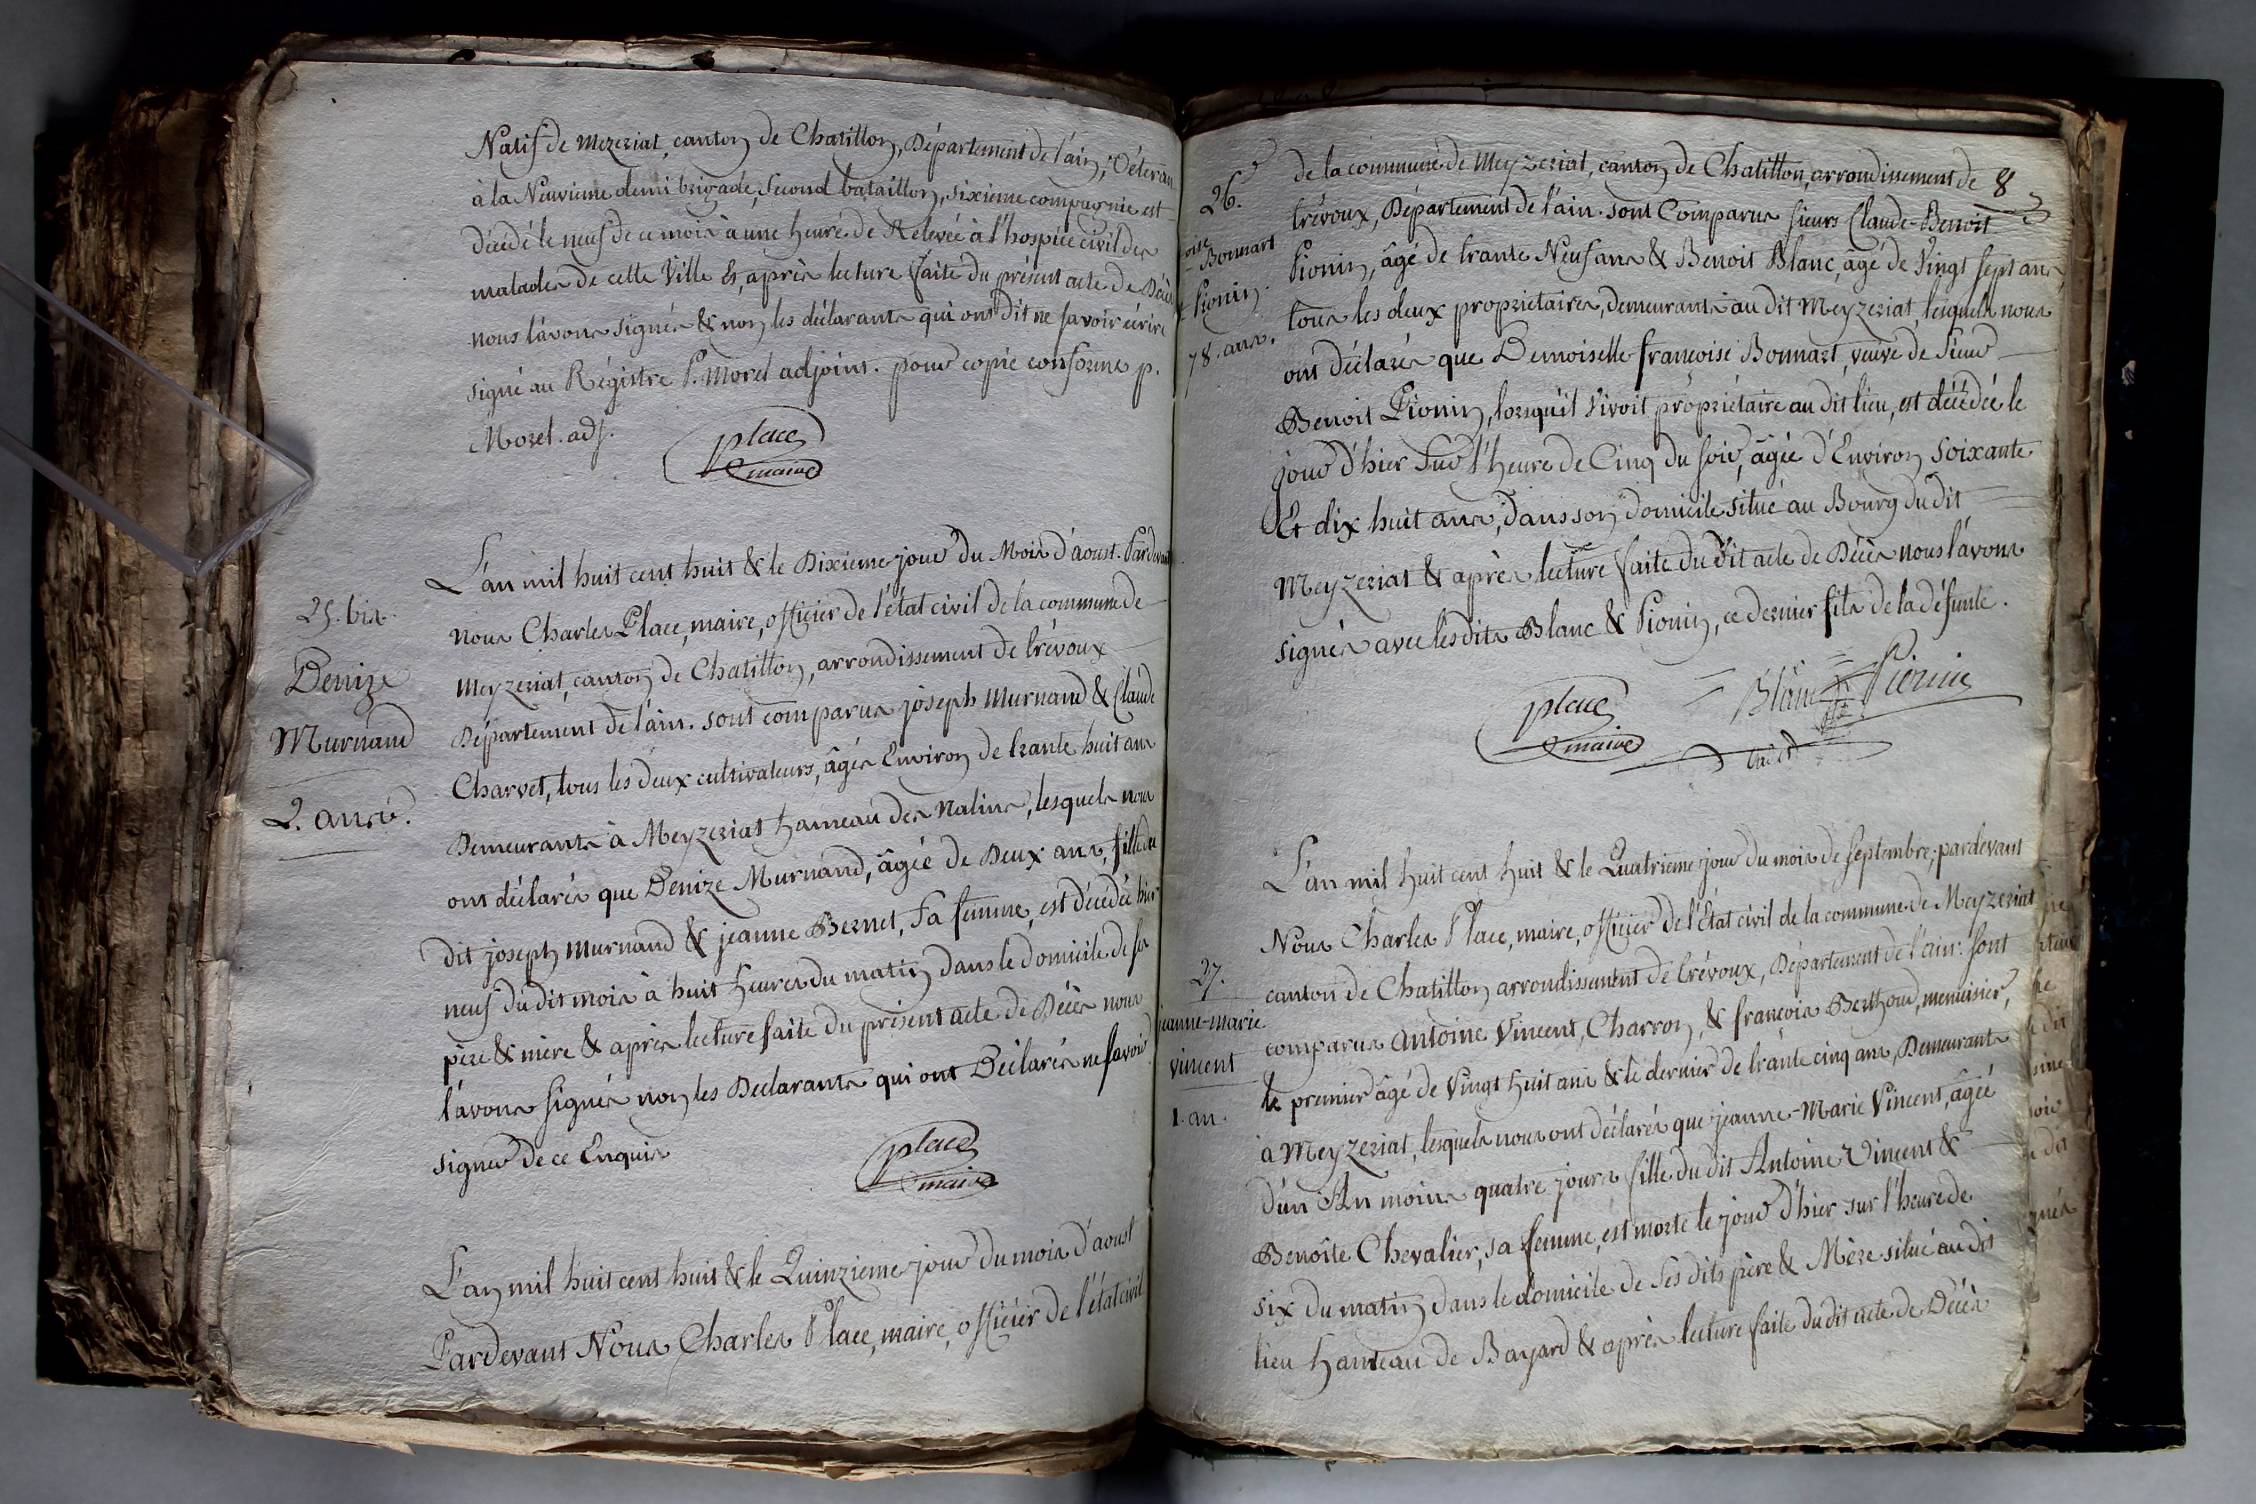 Natif de Mezeriat, canton de Chatillon, Département de l'ain, Véteran
à la Neuvieme demi brigade, second bataillon, sixieme compagnie est
décédé le neuf de ce mois à une heure de Relevée à l'hospice civil des
malades de cette Ville &, après lecture faite du présent acte de Décès
nous l'avons signés & non les déclarants qui ont Dit ne savoir écrire
signé au Régistre P. Morel adjoint. pour copie conforme p.
Morel. adj.
place
maire
L'an mil huit cent huit & le Dixieme jour du Mois d'aoust. Pardevant
nous Charles Place, maire, officier de l'état civil de la commune de
Meyzeriat, canton de Chatillon, arrondissement de trévoux
Département de l'ain. sont comparus joseph Murnand & Claude
Charvet, tous les deux cultivateurs, âgés Environ de trante huit ans
Demeurants à Meyzeriat hameau des Nalins, lesquels nous
ont déclarés que Denize Murnand, âgée de Deux ans, fille du
dit joseph Murnand & jeanne Bernet, sa femme, est décédée hier
neuf du dit mois à huit heures du matin dans le domicile de ses
père & mère & après lecture faite du présent acte de Décès nous
l'avons signés non les Declarants qui ont Déclarés ne savoir
signer de ce Enquis
place
maire
25. bis.
Denize
Murnand
2. ans.
L'an mil huit cent huit & le Quinzieme jour du mois d'aoust
Pardevant Nous Charles Place, maire, officier de l'état civil
8
26.
oise
- Bonnart
Pionin.
78. ans.
de la commune de Meyzeriat, canton de Chatillon, arrondissement de
trévoux, Département de l'ain. sont Comparus sieurs Claude-Benoit
Pionin, âgé de trante Neuf ans & Benoit Blanc, âgé de Vingt sept ans,
tous les deux propriétaires, demeurants au dit Meyzeriat, lesquels nous
ont déclarés que Demoiselle françoise Bonnart, veuve de Sieur
Benoit Pionin, lorsqu'il vivoit propriétaire au dit lieu, est décédée le
jour d'hier sur l'heure de Cinq du soir, âgée d'Environ soixante
Et dix huit ans, dans son domicile situé au Bourg du dit
Meyzeriat & après lecture faite du dit acte de Décès nous l'avons
signés avec lesdits Blanc & Pionin, ce dernier fils de la défunte.
place
maire
Blanc
Pionin
L'an mil huit cent huit & le Quatrieme jour du mois de septembre, pardevant
Nous Charles Place, maire, officier de l'Etat civil de la commune de Meyzeriat
canton de Chatillon arrondissement de trévoux, Département de l'ain. sont
comparus Antoine Vincent, Charron, & françois Berthoud, menuisier,
le premier âgé de Vingt huit ans & le dernier de trante cinq ans, Demeurants
à Meyzeriat, lesquels nous ont déclarés que jeanne-Marie Vincent, âgée
d'un An moins quatre jours fille du dit Antoine Vincent &
Benoite Chevalier, sa femme, est morte le jour d'hier sur l'heure de
six du matin dans le domicile de ses dits père & Mère situé au dit
lieu hameau de Bayard & après lecture faite du dit acte de Décès
27.
jeanne-marie
vincent
1. an.